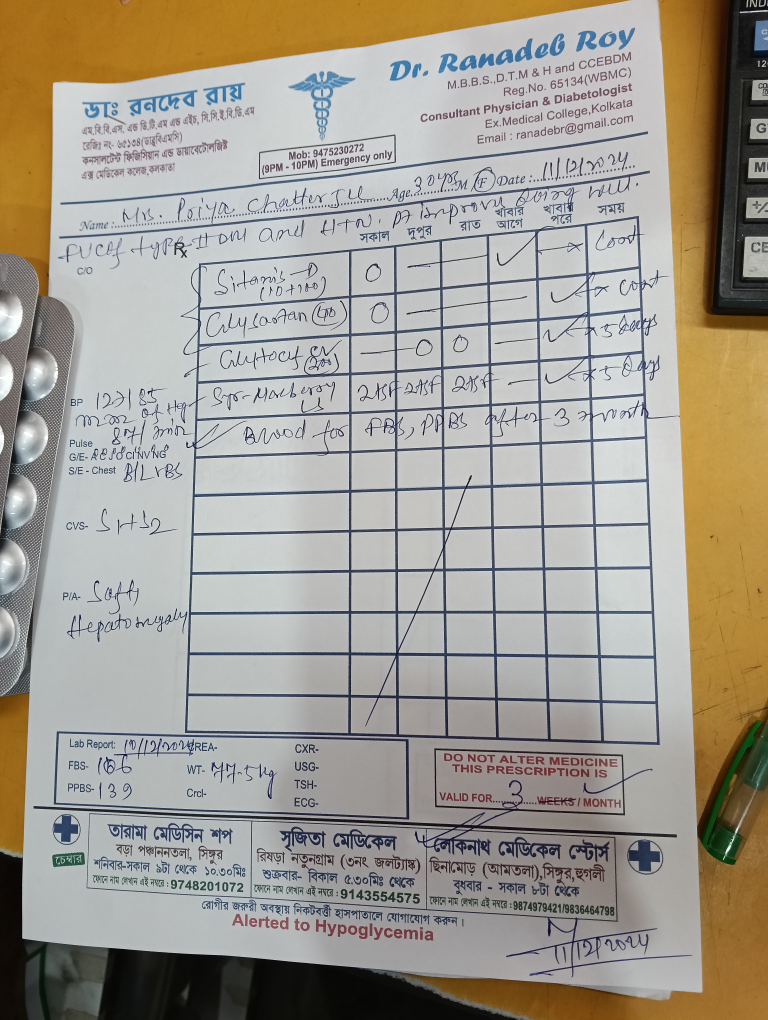 ডাঃ রনদেব রায়
এম.বি.বি.এস. এন্ড ডি.টি.এম এন্ড এইচ, সি.সি.ই.বি.ডি.এম
রেজিঃ নং- ৬৫১৩৪(ডাব্লুবিএমসি)
কনসালটেন্ট ফিজিসিয়ান এন্ড ডায়াবেটোলজিষ্ট
এক্স মেডিকেল কলেজ,কলকাতা
Mob: 9475230272
(9PM - 10PM) Emergency only
Dr. Ranadeb Roy
M.B.B.S.,D.T.M & H and CCEBDM
Reg.No. 65134(WBMC)
Consultant Physician & Diabetologist
Ex.Medical College,Kolkata
Email : ranadebr@gmail.com
Name: Mrs. Priya Chatterjee Age. 30 yrs M (F) Date: 11/12/2024
Type II DM and HTN. Pt improve doing well.
C/O Rx সকাল দুপুর রাত খাবার আগে খাবার পরে সময়
(10+100) O — ✓ → x Cont
(40) O — ✓ x Cont
(200) — O O — ✓ x 5 days
— ✓ x 5 days
Blood for FBS, PPBS after 3 month
BP 127/85
mm of Hg
Pulse 87/min
G/E-
S/E - Chest B/L VBS
CVS- S1+S2
P/A- Soft,
Hepatomegaly
Lab Report: 10/12/2024 UREA- CXR-
FBS- 106 WT- 77.5 kg USG-
PPBS- 139 Crcl- TSH-
ECG-
DO NOT ALTER MEDICINE
THIS PRESCRIPTION IS
VALID FOR 3 WEEKS / MONTH
চেম্বার
তারামা মেডিসিন শপ
বড়া পঞ্চাননতলা, সিঙ্গুর
শনিবার-সকাল ৯টা থেকে ১০.৩০মিঃ
ফোনে নাম লেখান এই নম্বরে : 9748201072
সৃজিতা মেডিকেল
রিষড়া নতুনগ্রাম (৩নং জলট্যাঙ্ক)
শুক্রবার- বিকাল ৫.৩০মিঃ থেকে
ফোনে নাম লেখান এই নম্বরে : 9143554575
লোকনাথ মেডিকেল স্টোর্স
ছিনামোড় (আমতলা),সিঙ্গুর,হুগলী
বুধবার - সকাল ৮টা থেকে
ফোনে নাম লেখান এই নম্বরে : 9874979421/9836464798
রোগীর জরুরী অবস্থায় নিকটবর্ত্তী হাসপাতালে যোগাযোগ করুন।
Alerted to Hypoglycemia
11/12/2024